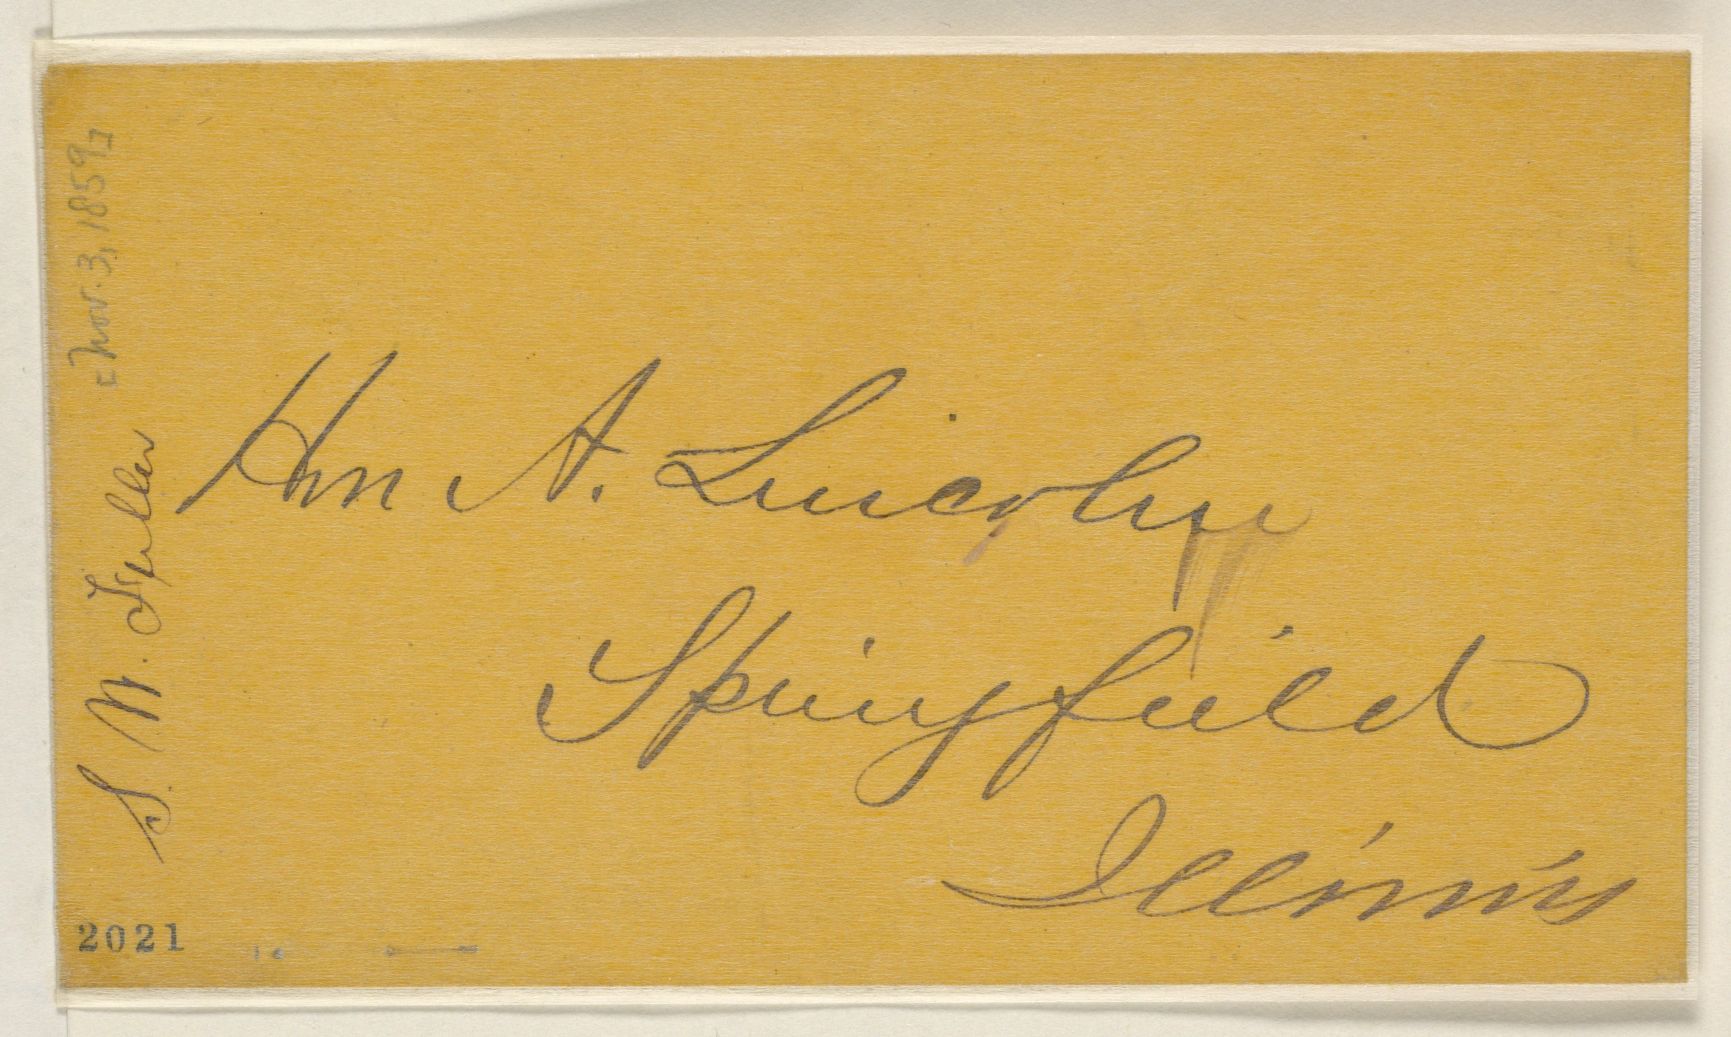 Hon A. Lincoln
Springfield
Illinois
S. W. Fuller
[Nov. 3, 1859]
2021